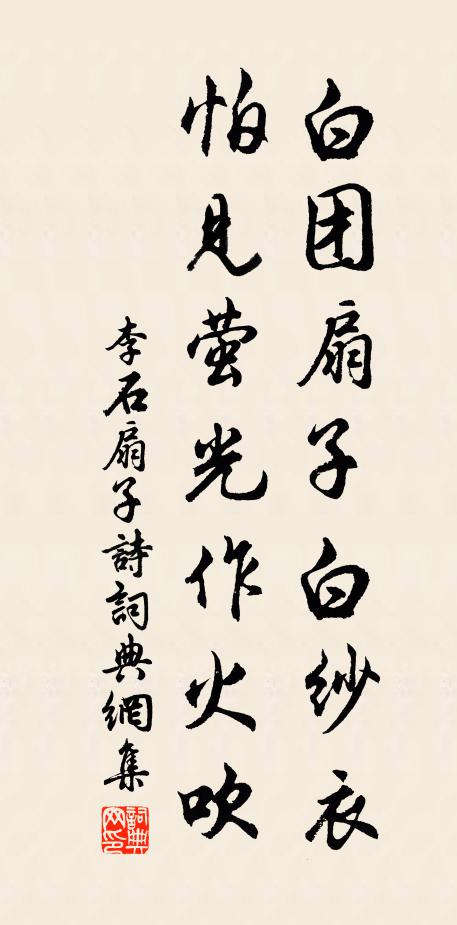 白团扇子白纱衣
怕见萤光作火吹
李石扇子詩詞典網集
詞典网印